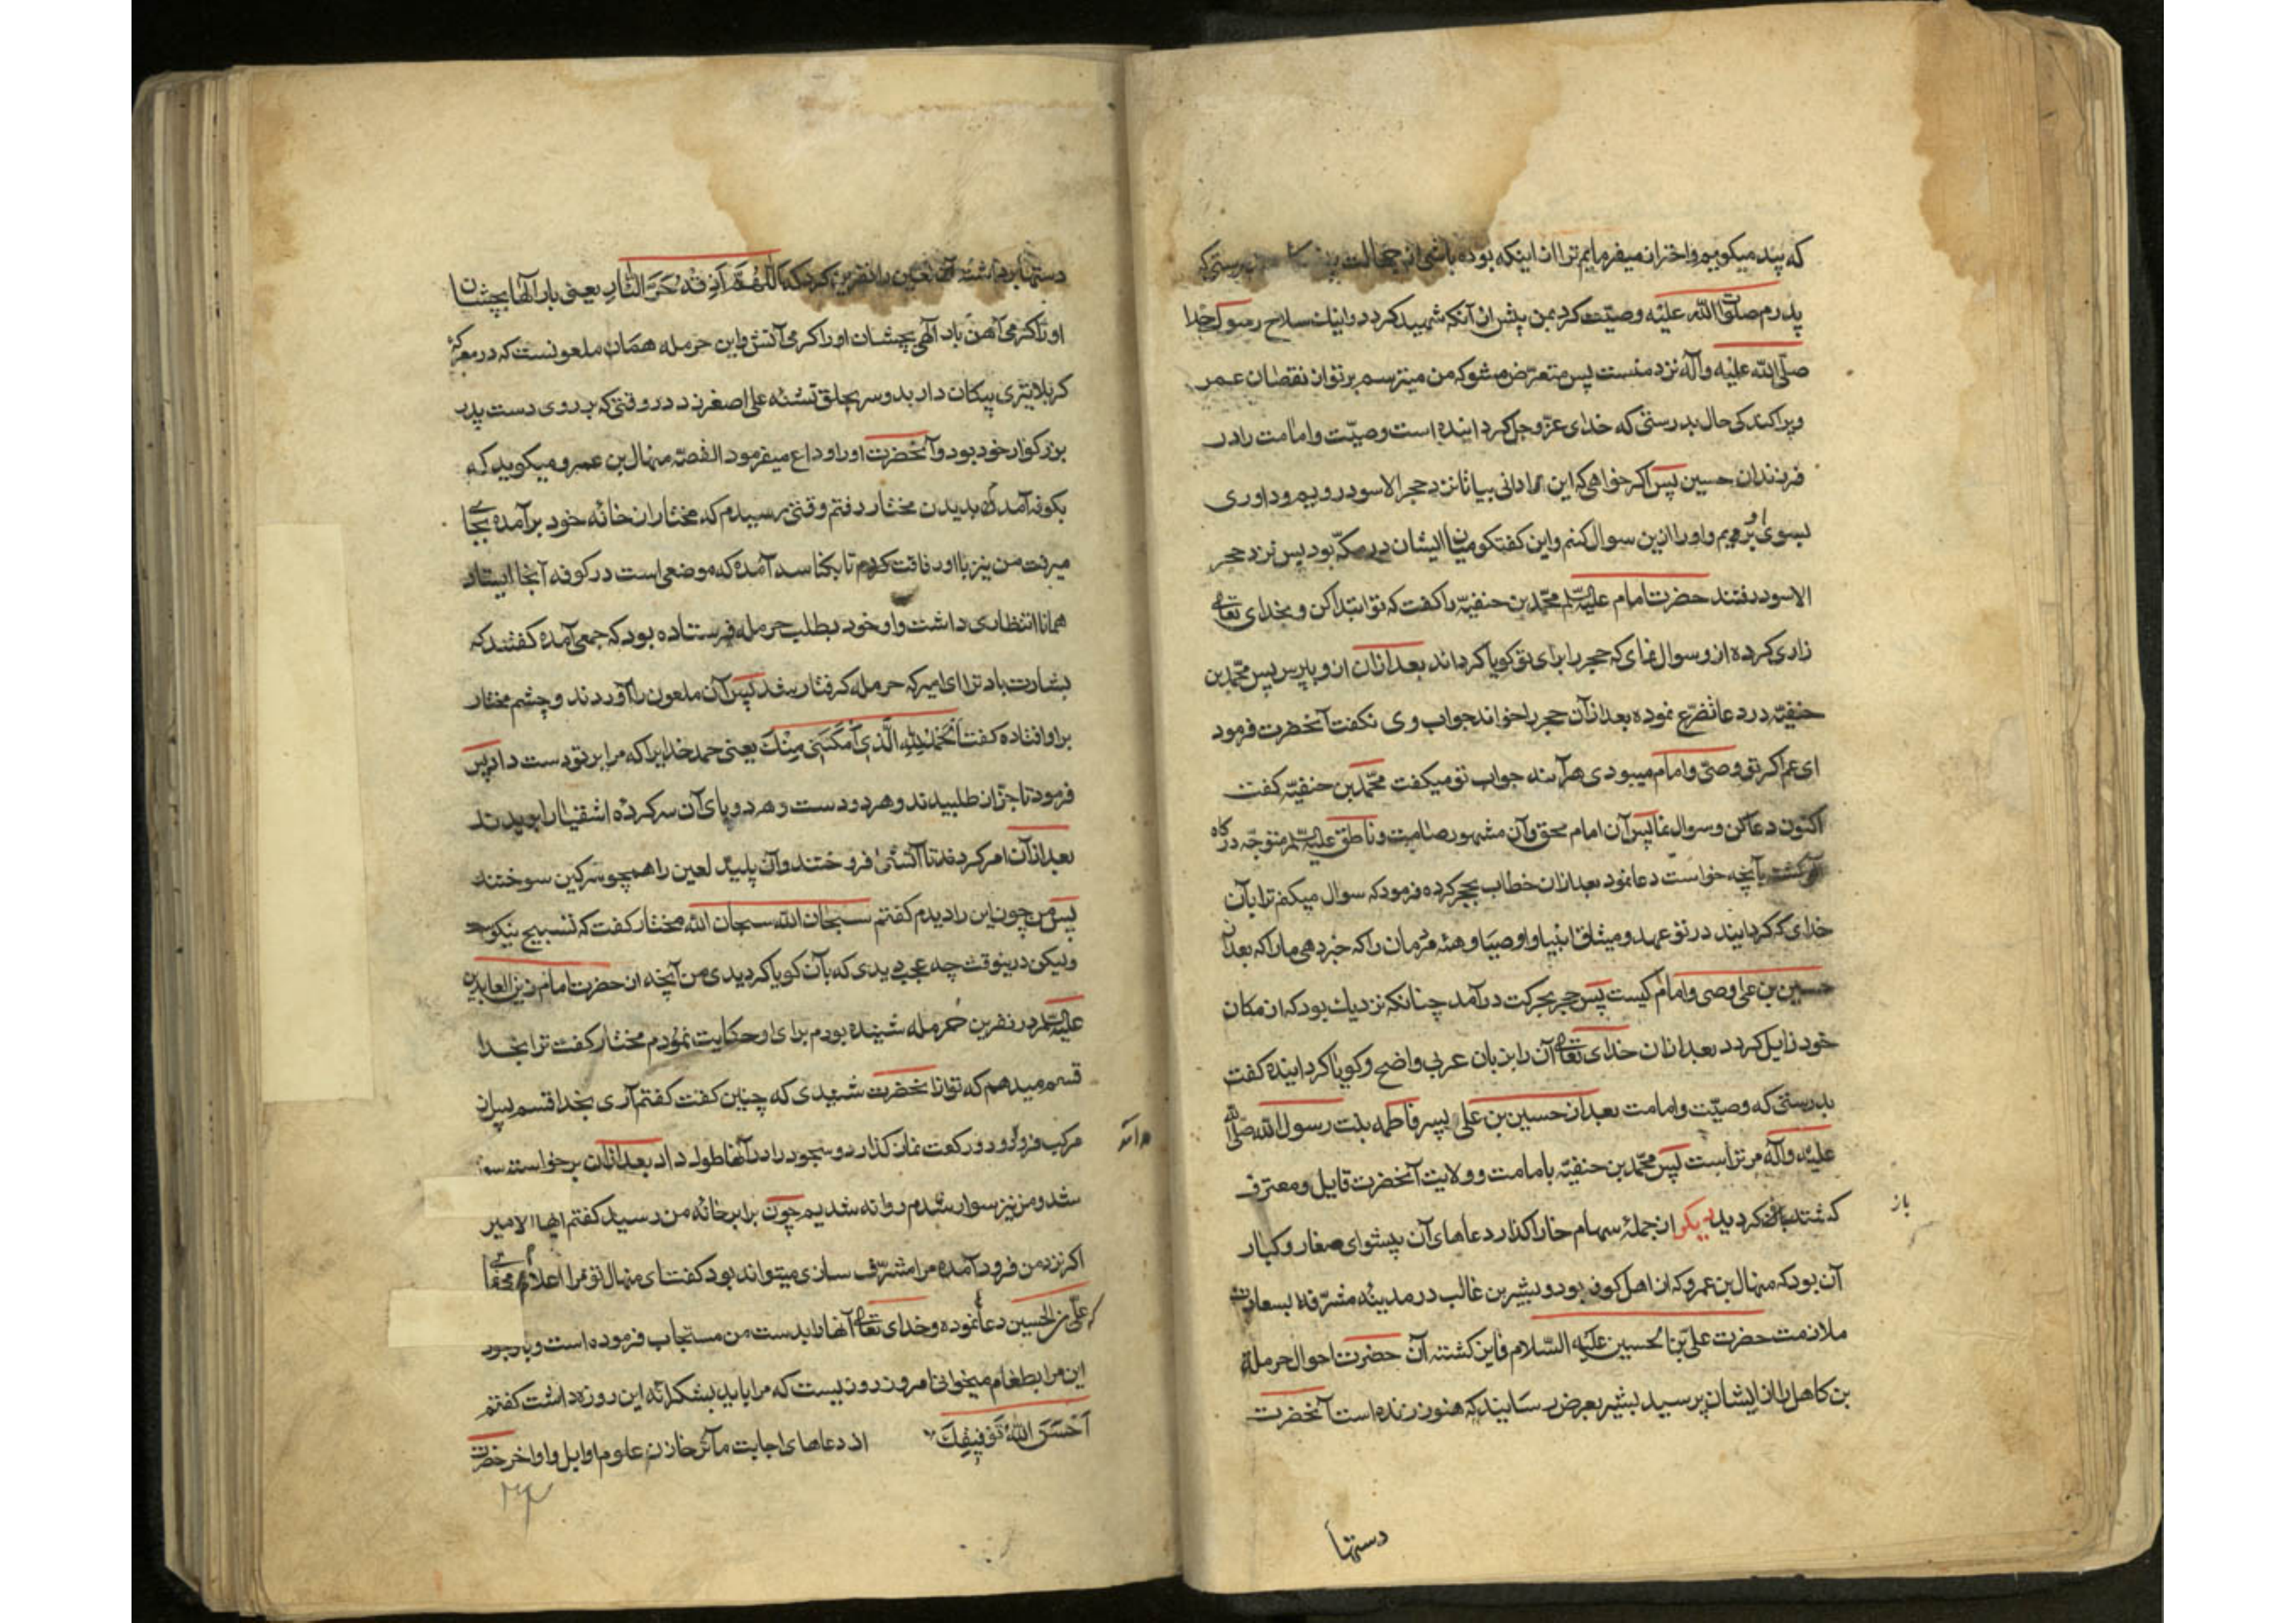 که پند میکویم و احتراز میفرمایم ترا از اینکه بوده باشی از جهالت بدرستیکه
پدرم صلوات الله علیه وصیّت کرد بمن پیش از آنکه شهید کردد و اینك سلاح رسول خدا
صلّی الله علیه وآله نزد منست پس متعرّض مشو که من میترسم بر تو از نقصان عمر
و پراکندکی حال بدرستی که خدای عزّ وجل کردانیده است وصیّت و امامت را در
فرزندان حسین پس اکر خواهی که این را دانی بیا تا نزد حجر الاسود رویم و داوری
بسوی او بریم و او را ازین سوال کنم و این کفتکو میان ایشان در مکّه بود پس نزد حجر
الاسود رفتند حضرت امام علیه السلم محمّد بن حنفیّه را کفت که تو ابتدا کن و بخدای تعالی
زاری کرده از و سوال نمای که حجر را برای تو کویا کرداند بعد ازان از و بپرس پس محمّد بن
حنفیّه در دعا تضرّع نموده بعد ازآن حجر را خواند جواب وی نکفت آنحضرت فرمود
ای عم اکر تو وصیّ و امام میبودی هرآینه جواب تو میکفت محمّد بن حنفیّه کفت
اکنون دعا کن و سوال نما پس آن امام محق و آن مشهور صامت و ناطق علیه السلم متوجّه درکاه
کشت بآنچه خواست دعا نمود بعد ازان خطاب بحجر کرده فرمود که سوال میکنم ترا بآن
خدای که کردانید در تو عهد و میثاق انبیا و اوصیا و همٔه مردمان را که خبر دهی ما را که بعد از
حسین بن علی وصی و امام کیست پس حجر بحرکت درآمد چنانکه نزدیك بود که از مکان
خود زایل کردد بعد ازان خدای تعالی آن را بزبان عربی واضح و کویا کردانیده کفت
بدرستی که وصیّت و امامت بعد از حسین بن علی پسر فاطمه بنت رسول الله صلّی الله
علیه وآله مر تراست پس محمّد بن حنفیّه بامامت و ولایت آنحضرت قایل و معترف
کشته باز کردید دیکر از جملهٔ سهام خارا کذار دعاهای آن پیشوای صغار و کبار
باز
آن بود که منهال بن عمرو که از اهل کوفه بود و بشیر بن غالب در مدینه مشرّفه بسعادت
ملازمت حضرت علیّ بن الحسین علیه السّلام فایز کشتند آن حضرت احوال حرملة
بن کاهل را از ایشان پرسید بشیر بعرض رسانید که هنوز زنده است آنحضرت
دستها
دستها برداشته آن لعین را نفرین کرد که اَللّهُمَّ اَذِقْهُ حَرَّ النّارِ یعنی بار آلها بچشان
او را کرمی آهن بار آلهی بچشان او را کرمی آتش و این حرمله همان ملعونست که در معرکهٔ
کربلا تیری پیکان دار بدو سر بحلق تشنه علی اصغر زد در وقتی که بر روی دست پدر
بزرکوار خود بود و آنحضرت او را وداع میفرمود القصّه منهال بن عمرو میکوید که
بکوفه آمده بدیدن مختار رفتم وقتی رسیدم که مختار از خانهٔ خود برآمده بجائی
میرفت من نیز با او رفاقت کردم تا بکناسه آمد که موضعی است در کوفه آنجا ایستاد
همانا انتظاری داشت و او خود بطلب حرمله فرستاده بود که جمعی آمده کفتند که
بشارت باد ترا ای امیر که حرمله کرفتار شد پس آن ملعون را آوردند و چشم مختار
بر او افتاده کفت اَلْحَمْدُ لِلّٰهِ الَّذی اَمْکَنَنی مِنْكَ یعنی حمد خدایرا که مرا بر تو دست داد پس
فرمود تا جزّار طلبیدند و هر دو دست و هر دو پای آن سرکردهٔ اشقیا را بریدند
بعد ازآن امر کرد تا آتشی افروختند و آن پلید لعین را همچو سرکین سوختند
پس من چون این را دیدم کفتم سبحان الله سبحان الله مختار کفت که تسبیح نیکوست
ولیکن درینوقت چه عجب دیدی که بآن کویا کردیدی من آنچه از حضرت امام زین العابدین
علیه السلم در نفرین حرمله شنیده بودم برای او حکایت نمودم مختار کفت ترا بخدا
قسم میدهم که تو از آنحضرت شنیدی که چنین کفت کفتم آری بخدا قسم پس از
مرکب فرود و دو رکعت نماز کذارد و سجود را در آنها طول داد بعد ازان برخواسته سوار
در آمد
شد و من نیز سوار شدم روانه شدیم چون برابر خانهٔ من رسید کفتم ایها الامیر
اکر نزد من فرود آمده مرا مشرّف سازی میتواند بود کفت ای منهال تو مرا اعلام میکنی
که علیّ بن الحسین دعا نموده و خدای تعالی آنها را بدست من مستجاب فرموده است و با وجود
این مرا بطعام میخوانی امروز روزیست که مرا باید بشکرانه این روزه داشت کفتم
اَحْسَنَ اللّٰهُ تَوْفیقِكَ از دعاهای اجابت مآثر خازن علوم اوایل و اواخر حضرت